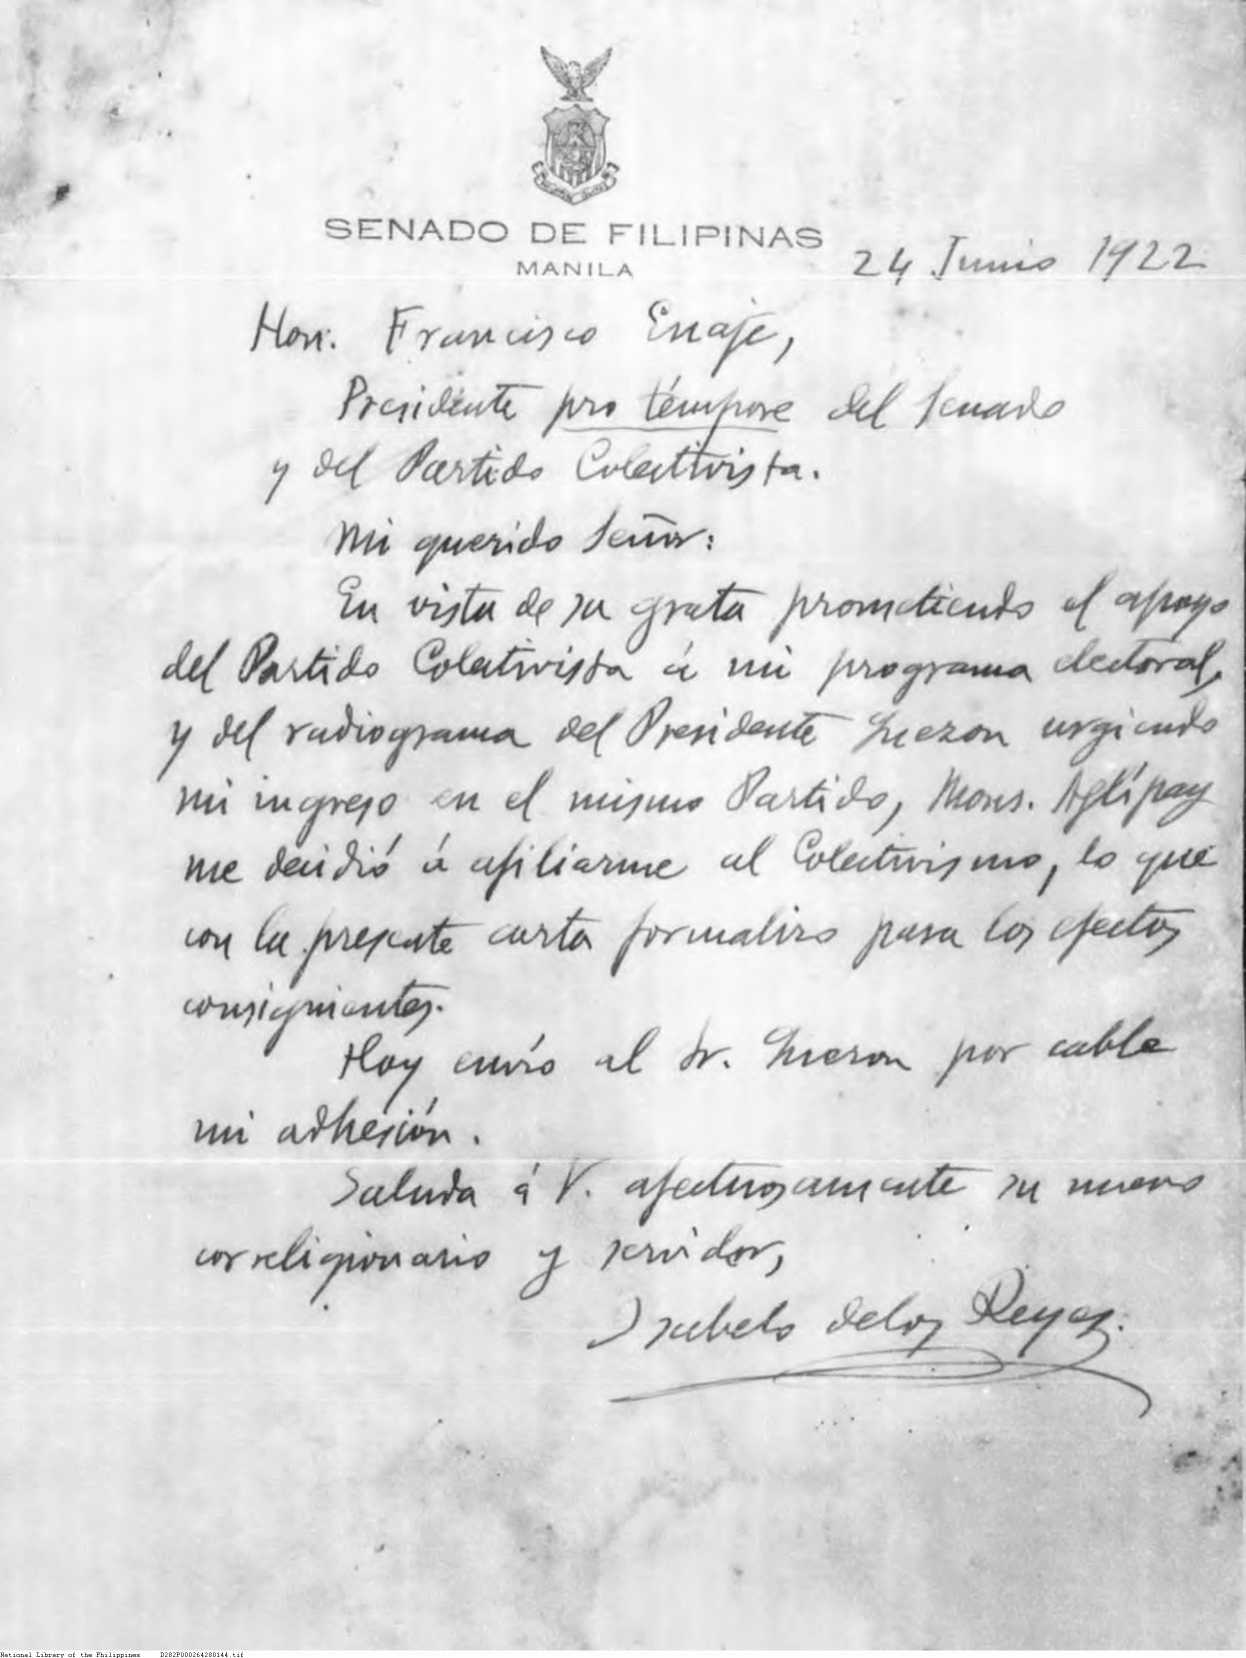 SENADO DE FILIPINAS
MANILA
24 Junio 1922
Hon. Francisco Enaje,
Presidente pro témpore del Senado
y del Partido Colectivista.
Mi querido Señor:
En vista de su grata prometiendo el apoyo
del Partido Colectivista á mi programa electoral,
y del radiograma del Presidente Quezon urgiendo
mi ingreso en el mismo Partido, Mons. Aglípay
me decidió á afiliarme al Colectivismo, lo que
con la presente carta formalizo para los efectos
consiguientes.
Hoy envío al Sr. Quezon por cable
mi adhesión.
Saluda á V. afectuosamente su nuevo
correligionario y servidor,
Isabelo delos Reyes.
National Library of the Philippines D282P000264280144.tif